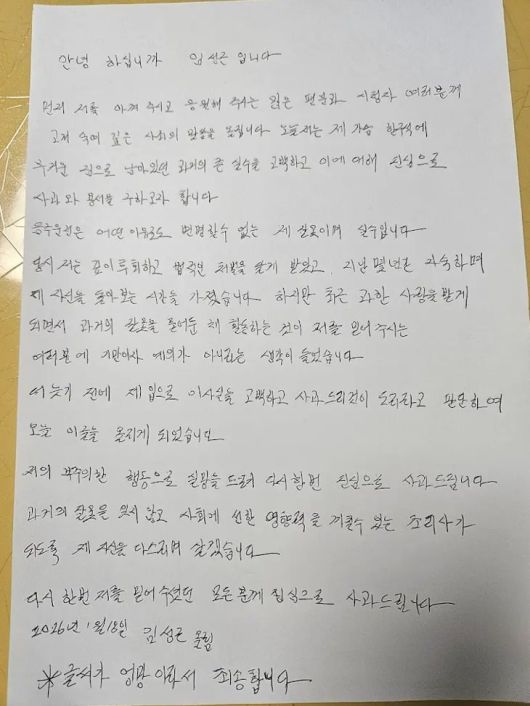 안녕 하십니까 임성근 입니다
먼저 저를 아껴 주시고 응원해 주시는 많은 팬분과 시청자 여러분께
고개 숙여 깊은 사죄의 말씀을 드립니다 오늘 저는 제 가슴 한구석에
무거운 짐으로 남아있던 과거의 큰 실수를 고백하고 이에 대해 진심으로
사과와 용서를 구하고자 합니다
음주운전은 어떤 이유로도 변명할수 없는 제 잘못이며 실수입니다
당시 저는 깊이 후회하고 법적인 처벌을 달게 받았고, 지난 몇년간 자숙하며
제 자신을 돌아보는 시간을 가졌습니다 하지만 최근 과한 사랑을 받게
되면서 과거의 잘못을 묻어둔 채 활동하는 것이 저를 믿어 주시는
여러분에 기만이자 예의가 아니라는 생각이 들었습니다
더 늦기 전에 제 입으로 이사실을 고백하고 사과드리것이 도리라고 판단하여
오늘 이글을 올리게 되었습니다
저의 부주의한 행동으로 실망을 드려 다시한번 진심으로 사과드립니다
과거의 잘못을 잊지 않고 사회에 선한 영향력을 끼칠수 있는 조리사가
되도록 제 자신을 다스리며 살겠습니다
다시 한번 저를 믿어 주셨던 모든 분께 진심으로 사과드립니다
2026년 1월 18일 임성근 올림
※글씨가 엉망이라서 죄송합니다